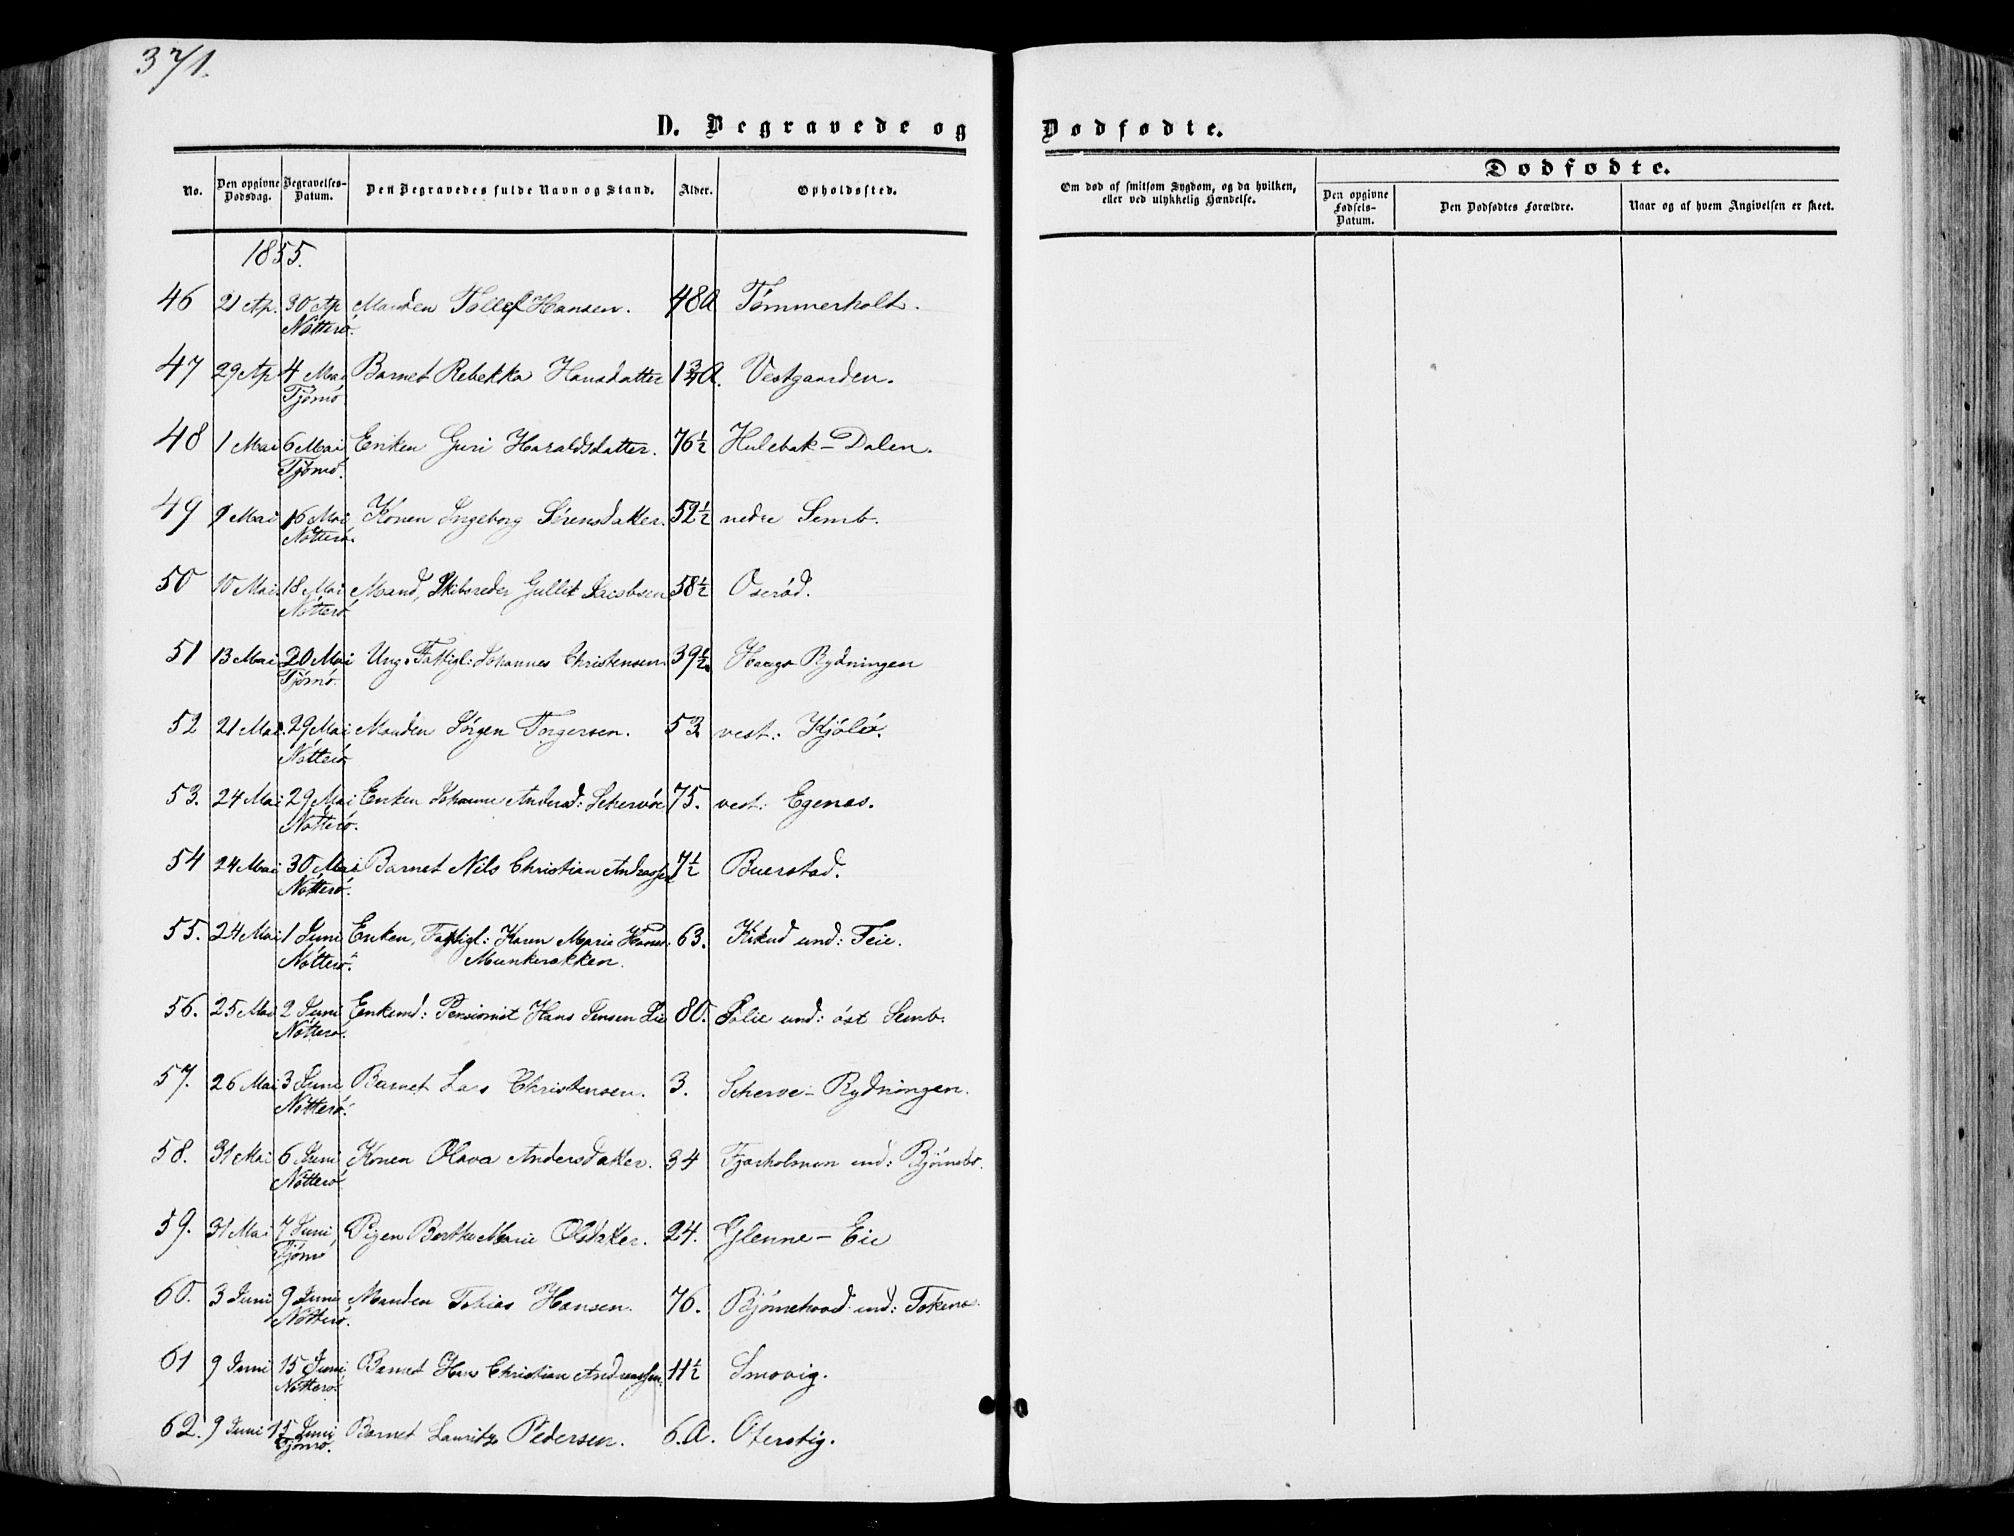 371.
D. Begravede og Dødfødte.
No. Den opgivne Dødsdag. Begravelses-Datum. Den Begravedes fulde Navn og Stand. Alder. Opholdssted. Om død af smitsom Sygdom, og da hvilken, eller ved ulykkelig Hændelse. Dødfødte. Den opgivne Fødsels-Datum. Den Dødfødtes Forældre. Naar og af hvem Angivelsen er skeet.
1855.
46 21 Ap. 30 Ap Manden Tollef Hansen. 48 A Tømmerholt.
Nøtterø.
47 29 Ap 4 Mai Barnet Rebekka Hansdatter 1 3/4 A. Vestgaarden.
Tjømø
48 1 Mai 6 Mai Enken Guri Haraldsdatter. 76 1/2 Hulebak-Dalen.
Tjømø.
49 9 Mai 16 Mai Konen Ingeborg Sørensdatter. 52 1/2 nedre Semb.
Nøtterø.
50 10 Mai 18 Mai Mand, Skibsreder Gullik Jacobsen 58 1/2 Oserød.
Nøtterø
51 13 Mai 20 Mai Ung. Fattigl: Johannes Christensen. 39 1/2 Haugs Rydningen
Tjømø.
52 21 Mai. 29 Mai Manden Jørgen Torgersen. 53 vest: Kjøløe.
Nøtterø
53. 24 Mai 29 Mai Enken Johanne Andersd: Schervøe 75. vest: Egenes.
Nøtterø.
54 24 Mai 30 Mai Barnet Nils Christian Andreassen 7 1/2 Buerstad.
Nøtterø.
55. 24 Mai 1 Juni Enken, Fattigl: Karen Maria Hansd: 63. Kikud und: Teie.
Nøtterø. Munkerekken.
56. 25 Mai 2 Juni Enkemd: Pensionist Hans Jensen Lie 80. Solie und: øst Semb.
Nøtterø.
57. 26 Mai 3 Juni Barnet Lars Christensen. 3. Scherve-Rydningen.
Nøtterø.
58. 31 Mai 6 Juni Konen Olava Andersdatter. 34 Fjærholmen und: Bjørnebo.
Nøtterø.
59. 31 Mai 7 Juni Pigen Berthe Marie Olsdatter. 24. Glenne-Eie
Tjømø
60. 3 Juni 9 Juni Manden Tobias Hansen. 76. Bjørnehoved und: Tokenes.
Nøtterø.
61 9 Juni 15 Juni Barnet Hans Christian Andreassen. 11 1/2 Smovig.
Nøtterø.
62. 9 Juni 15 Juni Barnet Lauritz Pedersen. 6. A. Oferstig.
Tjømø.